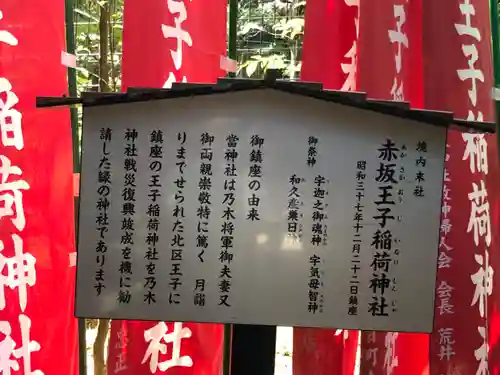 境内末社
赤坂王子稲荷神社
あかさかおうじいなりじんじゃ
昭和三十七年十二月二十二日鎮座
御祭神
宇迦之御魂神 宇気母智神
和久産巣日神
御鎮座の由来
当神社は乃木将軍御夫妻又
御両親崇敬特に篤く 月詣
りまでせられた北区王子に
鎮座の王子稲荷神社を乃木
神社戦災復興竣成を機に勧
請した縁の神社であります
王子稲荷神社
婦人会 会長 荒井
稲荷神社
忠正
社